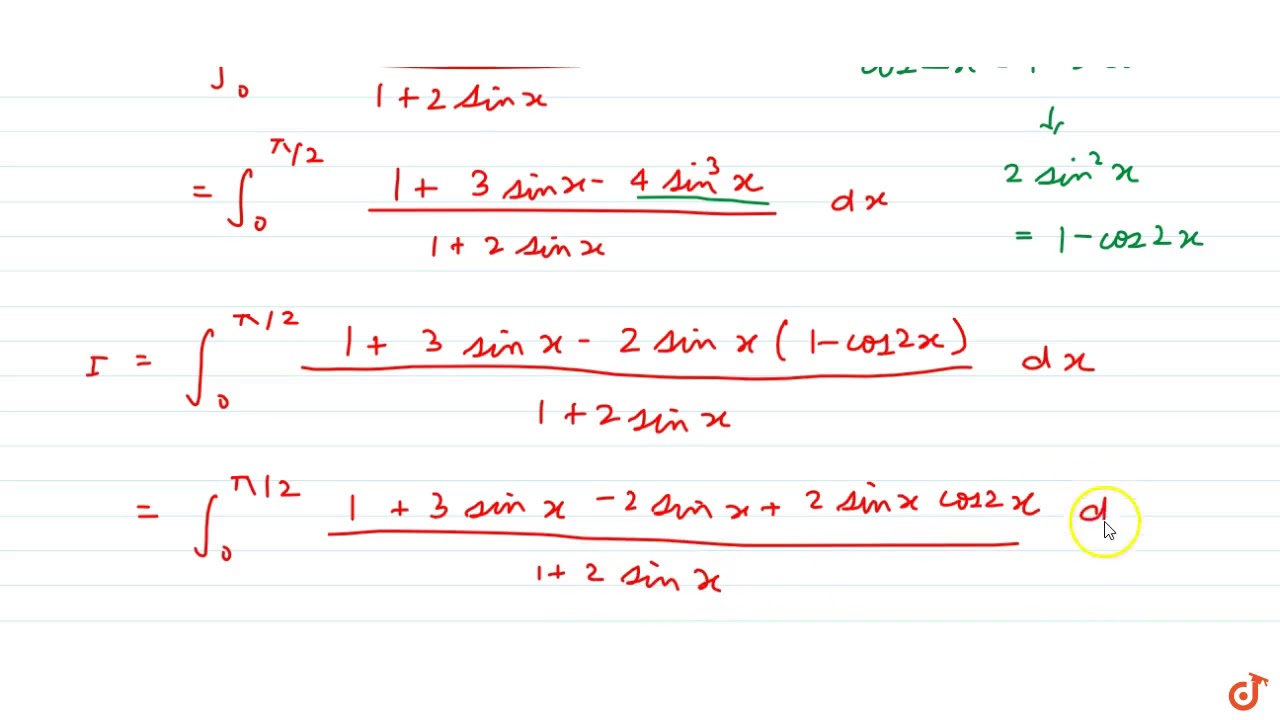 ∫₀
1 + 2 sin x
= ∫₀^{π/2} (1 + 3 sin x - 4 sin³ x) / (1 + 2 sin x) dx
2 sin² x
= 1 - cos 2x
I = ∫₀^{π/2} (1 + 3 sin x - 2 sin x (1 - cos 2x)) / (1 + 2 sin x) dx
= ∫₀^{π/2} (1 + 3 sin x - 2 sin x + 2 sin x cos 2x) / (1 + 2 sin x) d